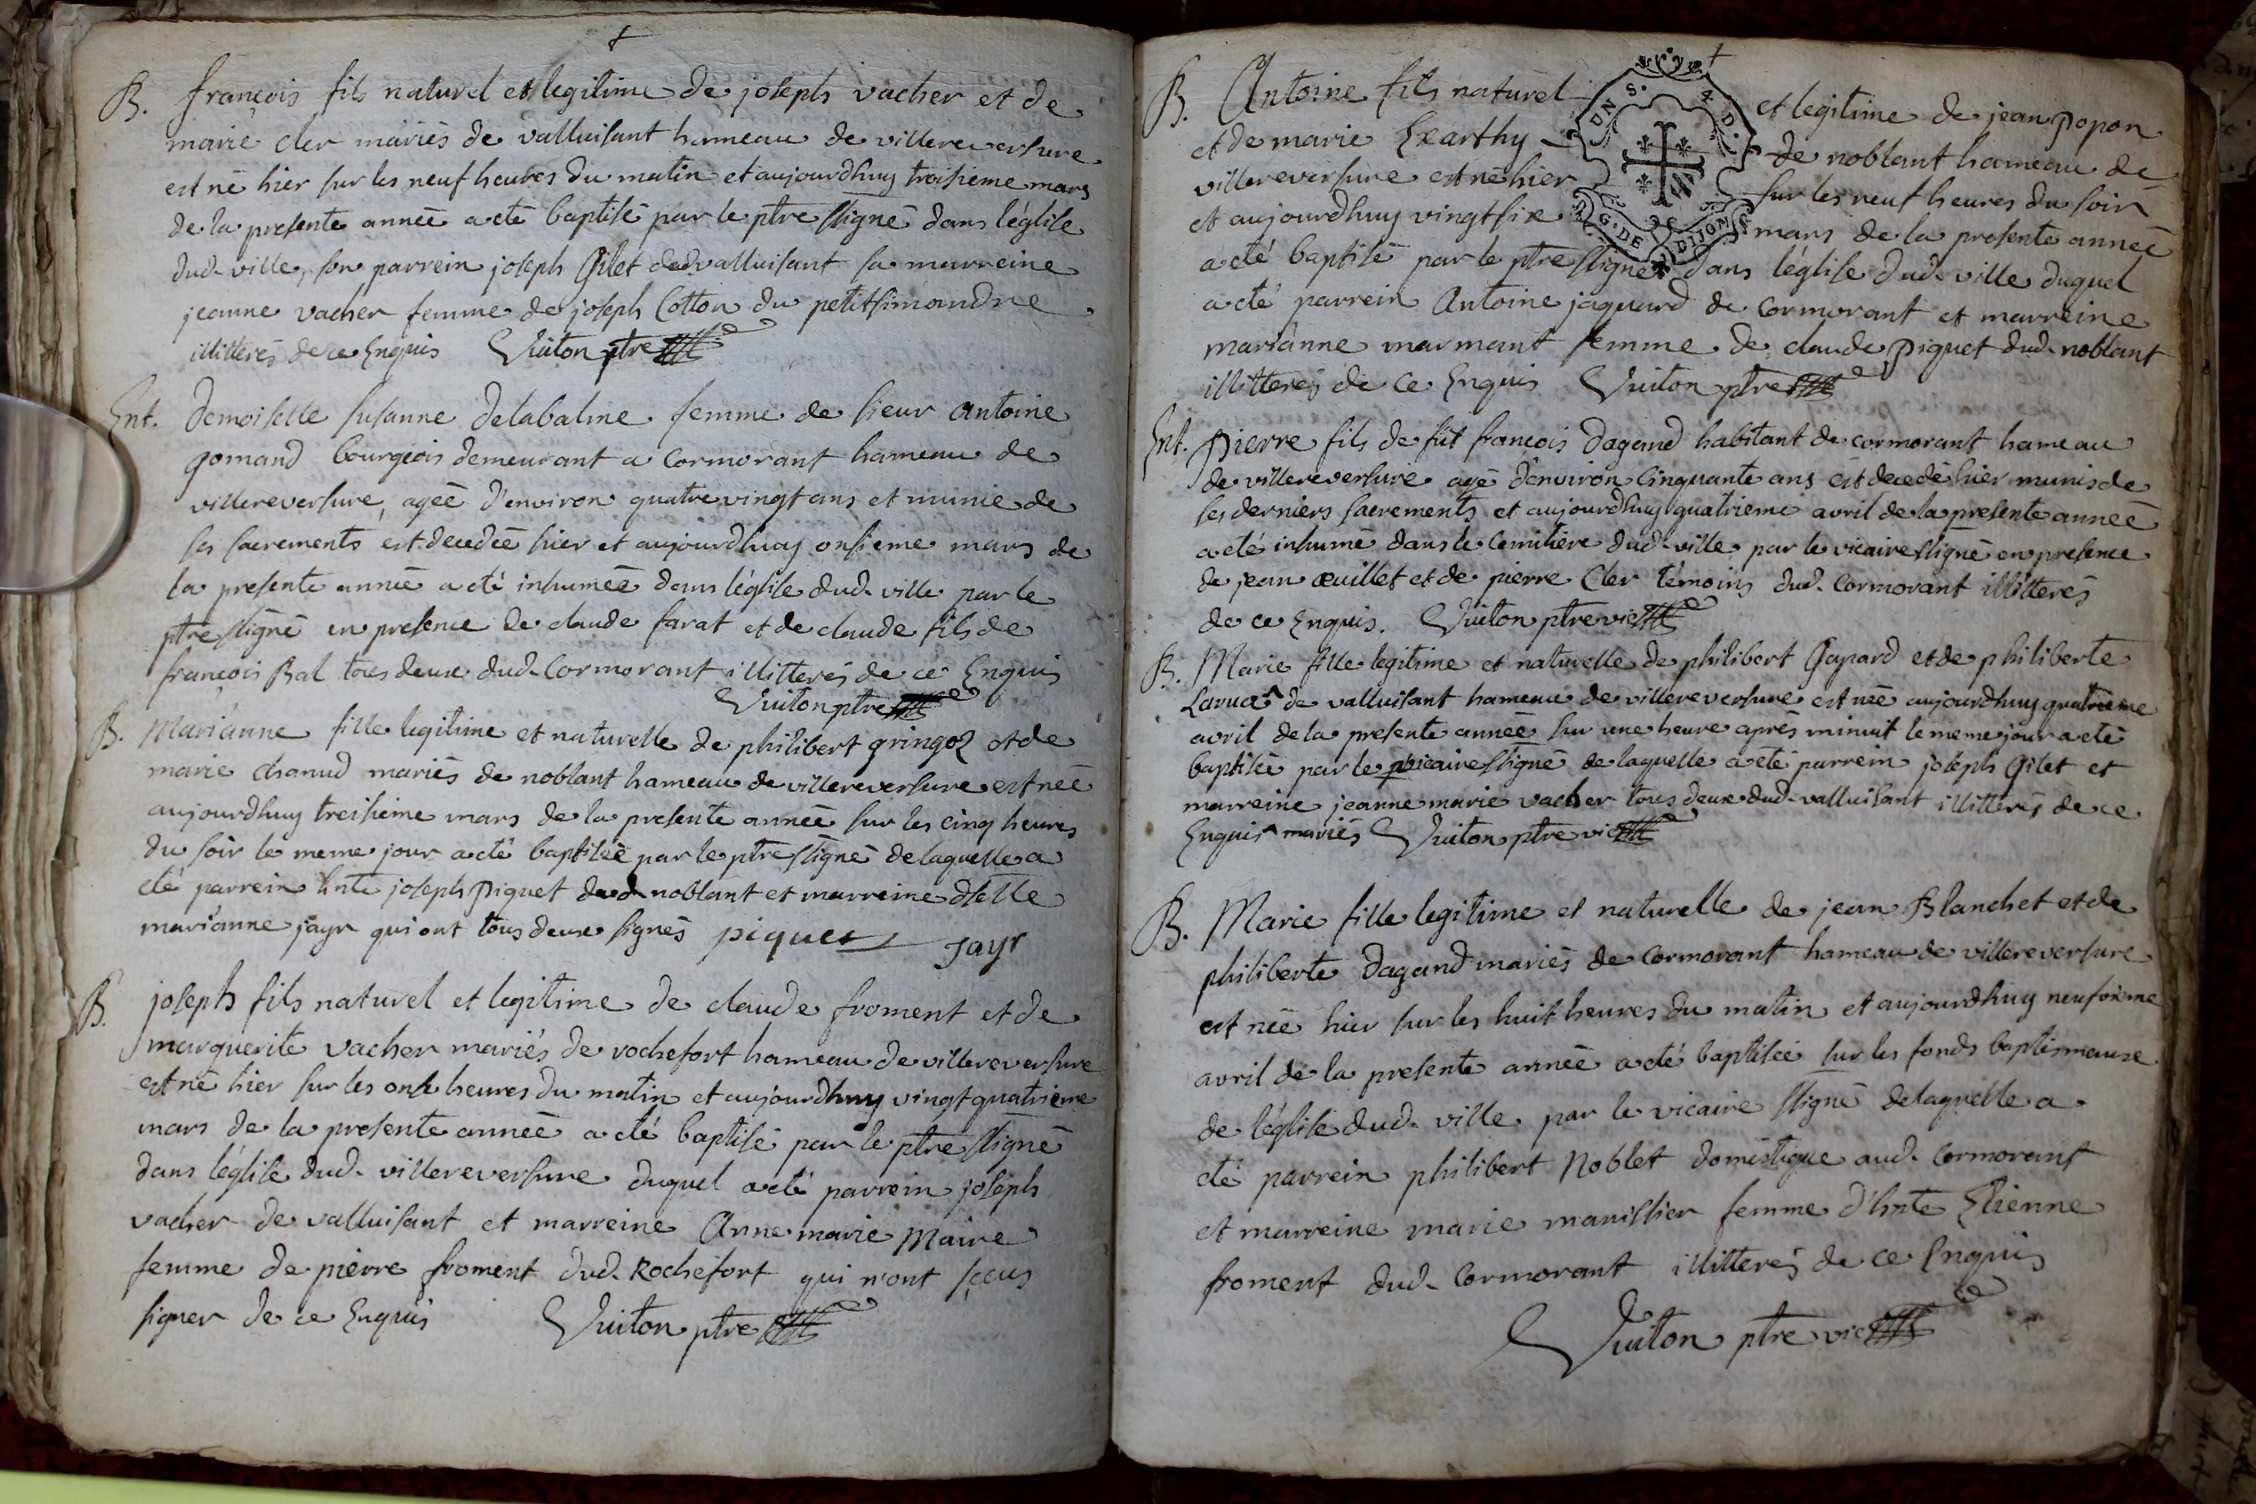 B. françois fils naturel et legitime de joseph vacher et de
marie cler mariés de valluisant hameau de villereversure
est né hier sur les neuf heures du matin et aujourdhuy troisieme mars
de la presente année a eté baptisé par le ptre ssigné dans léglise
dud. ville, son parrein joseph Gilet dud valluisant sa marreine
jeanne vacher femme de joseph Cotton du petit simandre
illitterés de ce Enquis Vuiton ptre
Ent. Demoiselle susanne delabalme femme de sieur antoine
gomand bourgeois demeurant a Cormorant hameau de
villereversure, agée d'environ quatre vingt ans et munie de
ses sacrements est decedée hier et aujourdhuy onsieme mars de
la presente année a eté inhumée dans léglise dud. ville par le
ptre ssigné en presence de claude farat et de claude fils de
françois Bal tous deux dud. Cormorant illitterés de ce Enquis
Vuiton ptre
B. Marianne fille legitime et naturelle de philibert gringoz et de
marie chanud mariés de noblant hameau de villereversure est née
aujourdhuy treisieme mars de la presente année sur les cinq heures
du soir le meme jour a eté baptisée par le ptre ssigné de laquelle a
eté parrein hnte joseph piquet dud noblant et marreine dselle
marianne jayr qui ont tous deux signés piquet jayr
B. joseph fils naturel et legitime de claude froment et de
marguerite vacher mariés de rochefort hameau de villereversure
est né hier sur les onse heures du matin et aujourdhuy vingt quatrieme
mars de la presente année a eté baptisé par le ptre ssigné
dans léglise dud. villereversure duquel a eté parrein joseph
vacher de valluisant et marreine Anne marie Maire
femme de pierre froment dud. Rochefort qui n'ont sçeus
signer de ce Enquis Vuiton ptre
B. Antoine fils naturel et legitime de jean popon
et de marie Exarthy de noblant hameau de
villereversure est né hier sur les neuf heures du soir
et aujourdhuy vingt six mars de la presente année
a eté baptisé par le ptre ssigné dans léglise dud. ville duquel
a eté parrein Antoine jaquard de Cormorant et marreine
marianne marmant femme de claude piquet dud. noblant
illitterés de ce Enquis Vuiton ptre
G. DE DIJON
Ent. pierre fils de fut françois Dagand habitant de cormorant hameau
de villereversure agé d'environ Cinquante ans est decedé hier munis de
ses derniers sacrements et aujourdhuy quatrieme avril de la presente année
a eté inhumé dans le Cemitiere dud. ville par le vicaire ssigné en presence
de jean œuillet et de pierre Cler témoins dud. Cormorant illitterés
de ce Enquis. Vuiton ptre vic
B. Marie fille legitime et naturelle de philibert Gapard et de philiberte
Larue^ de valluisant hameau de villereversure est née aujourdhuy quatrieme
avril de la presente année sur une heure aprés minuit le meme jour a eté
baptisée par le vicaire ssigné de laquelle a eté parrein joseph Gilet et
marreine jeanne marie vacher tous deux dud. valluisant illitterés de ce
Enquis ^ mariés Vuiton ptre vic
B. Marie fille legitime et naturelle de jean Blanchet et de
philiberte Dagand mariés de Cormorant hameau de villereversure
est née hier sur les huit heures du matin et aujourdhuy neufvieme
avril de la presente année a eté baptisée sur les fonds baptismeaux
de léglise dud. ville par le vicaire ssigné de laquelle a
eté parrein philibert Noblet domestique aud. Cormorant
et marreine marie manissier femme d'hnte Etienne
froment dud. Cormorant illitterés de ce Enquis
Vuiton ptre vic